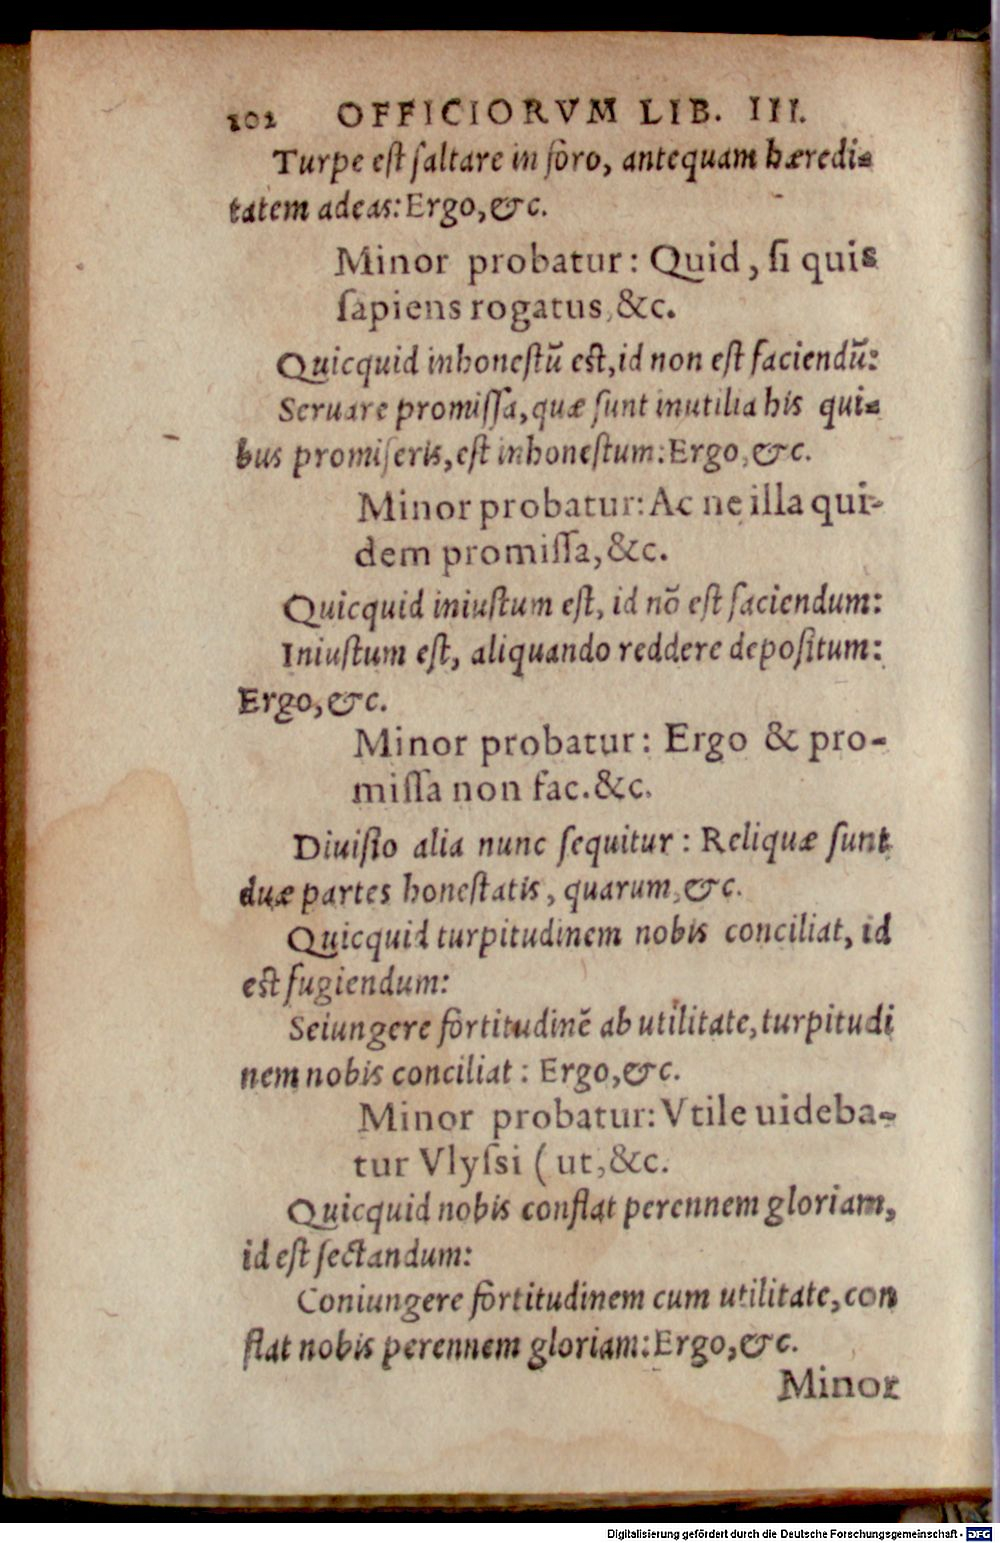 202 OFFICIORVM LIB. III.
Turpe est ſaltare in foro, antequam hæredi-
tatem adeas: Ergo, &c.
Minor probatur: Quid, ſi quis
ſapiens rogatus, &c.
Quicquid inhoneſtũ est, id non eſt faciendũ:
Seruare promiſſa, quæ ſunt inutilia his qui-
bus promiſeris, eſt inhoneſtum: Ergo, &c.
Minor probatur: Ac ne illa qui-
dem promiſſa, &c.
Quicquid iniuſtum eſt, id nõ eſt faciendum:
Iniuſtum eſt, aliquando reddere depoſitum:
Ergo, &c.
Minor probatur: Ergo & pro-
miſſa non fac. &c.
Diuiſio alia nunc ſequitur: Reliquæ ſunt
duæ partes honeſtatis, quarum, &c.
Quicquid turpitudinem nobis conciliat, id
est fugiendum:
Seiungere fortitudinẽ ab utilitate, turpitudi
nem nobis conciliat: Ergo, &c.
Minor probatur: Vtile uideba-
tur Vlyſsi (ut, &c.
Quicquid nobis conflat perennem gloriam,
id eſt ſectandum:
Coniungere fortitudinem cum utilitate, con
flat nobis perennem gloriam: Ergo, &c.
Minor
Digitalisierung gefördert durch die Deutsche Forschungsgemeinschaft - DFG